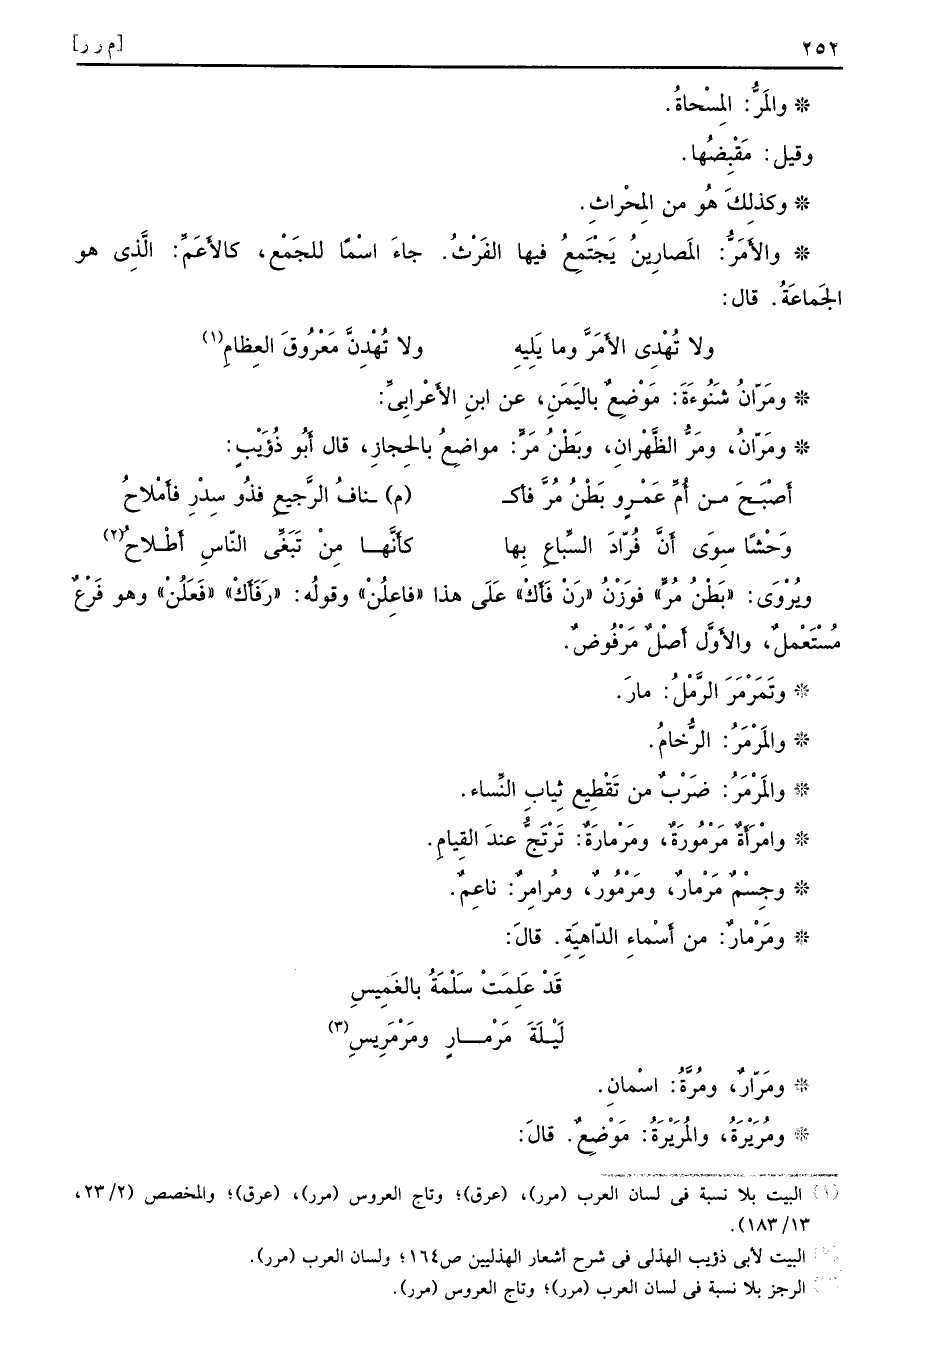 ٢٥٢ [م ر ر]
* والمَرُّ: المِسْحاةُ.
وقيل: مَقْبِضُها.
* وكذلِكَ هُو من المِحْراثِ.
* والأَمَرُّ: المَصارِينُ يَجْتَمِعُ فيها الفَرْثُ. جاءَ اسْمًا للجَمْعِ، كالأَعَمِّ: الَّذى هو
الجَماعَةُ. قال:
ولا تُهْدِى الأمَرَّ وما يَلِيهِ ولا تُهْدِنَّ مَعْرُوقَ العِظامِ(١)
* ومَرّانُ شَنُوءَةَ: مَوْضِعٌ بالْيَمَنِ، عن ابنِ الأَعْرابِىِّ:
* ومَرّانُ، ومَرُّ الظَّهْرانِ، وبَطْنُ مَرٍّ: مواضِعُ بالحِجازِ، قال أَبُو ذُؤَيْبٍ:
أَصْبَـحَ مـن أُمِّ عَمْـرٍو بَطْنُ مُرَّ فأكـ (م) ـنافُ الرَّجيعِ فذُو سِدْرٍ فأمْلاحُ
وَحْشًا سِوَى أَنَّ فُرّادَ السِّباعِ بِها كأنَّهـا مِنْ تَبَغِّى النّاسِ أطْـلاحُ(٢)
ويُرْوَى: «بَطْنُ مُرٍّ» فوَزْنُ «رِنْ فَأَكْ» عَلَى هذا «فاعِلُنْ» وقولُه: «رَفَأَكْ» «فَعَلُنْ» وهو فَرْعٌ
مُسْتَعْملٌ، والأوَّل أصْلٌ مَرْفُوضٌ.
* وتَمَرْمَرَ الرَّمْلُ: مارَ.
* والمَرْمَرُ: الرُّخامُ.
* والمَرْمَرُ: ضَرْبٌ من تَقْطِيعِ ثِيابِ النِّساءِ.
* وامْرَأَةٌ مَرْمُورَةٌ، ومَرْمارَةٌ: تَرْتَجُّ عندَ القِيامِ.
* وجِسْمٌ مَرْمارٌ، ومَرْمُورٌ، ومُرامِرٌ: ناعِمٌ.
* ومَرْمارٌ: من أَسْماءِ الدّاهِيَةِ. قالَ:
قَدْ عَلِمَتْ سَلْمَةُ بالغَمِيسِ
لَيْـلَةَ مَرْمـــارٍ ومَرْمَرِيسِ(٣)
* ومَرّارٌ، ومُرَّةُ: اسْمانِ.
* ومُرَيْرَةُ، والمُرَيْرَةُ: مَوْضِعٌ. قالَ:
(١) البيت بلا نسبة فى لسان العرب (مرر)، (عرق)؛ وتاج العروس (مرر)، (عرق)؛ والمخصص (٢/ ٢٣،
١٣/ ١٨٣).
البيت لأبى ذؤيب الهذلى فى شرح أشعار الهذليين ص١٦٤؛ ولسان العرب (مرر).
الرجز بلا نسبة فى لسان العرب (مرر)؛ وتاج العروس (مرر).